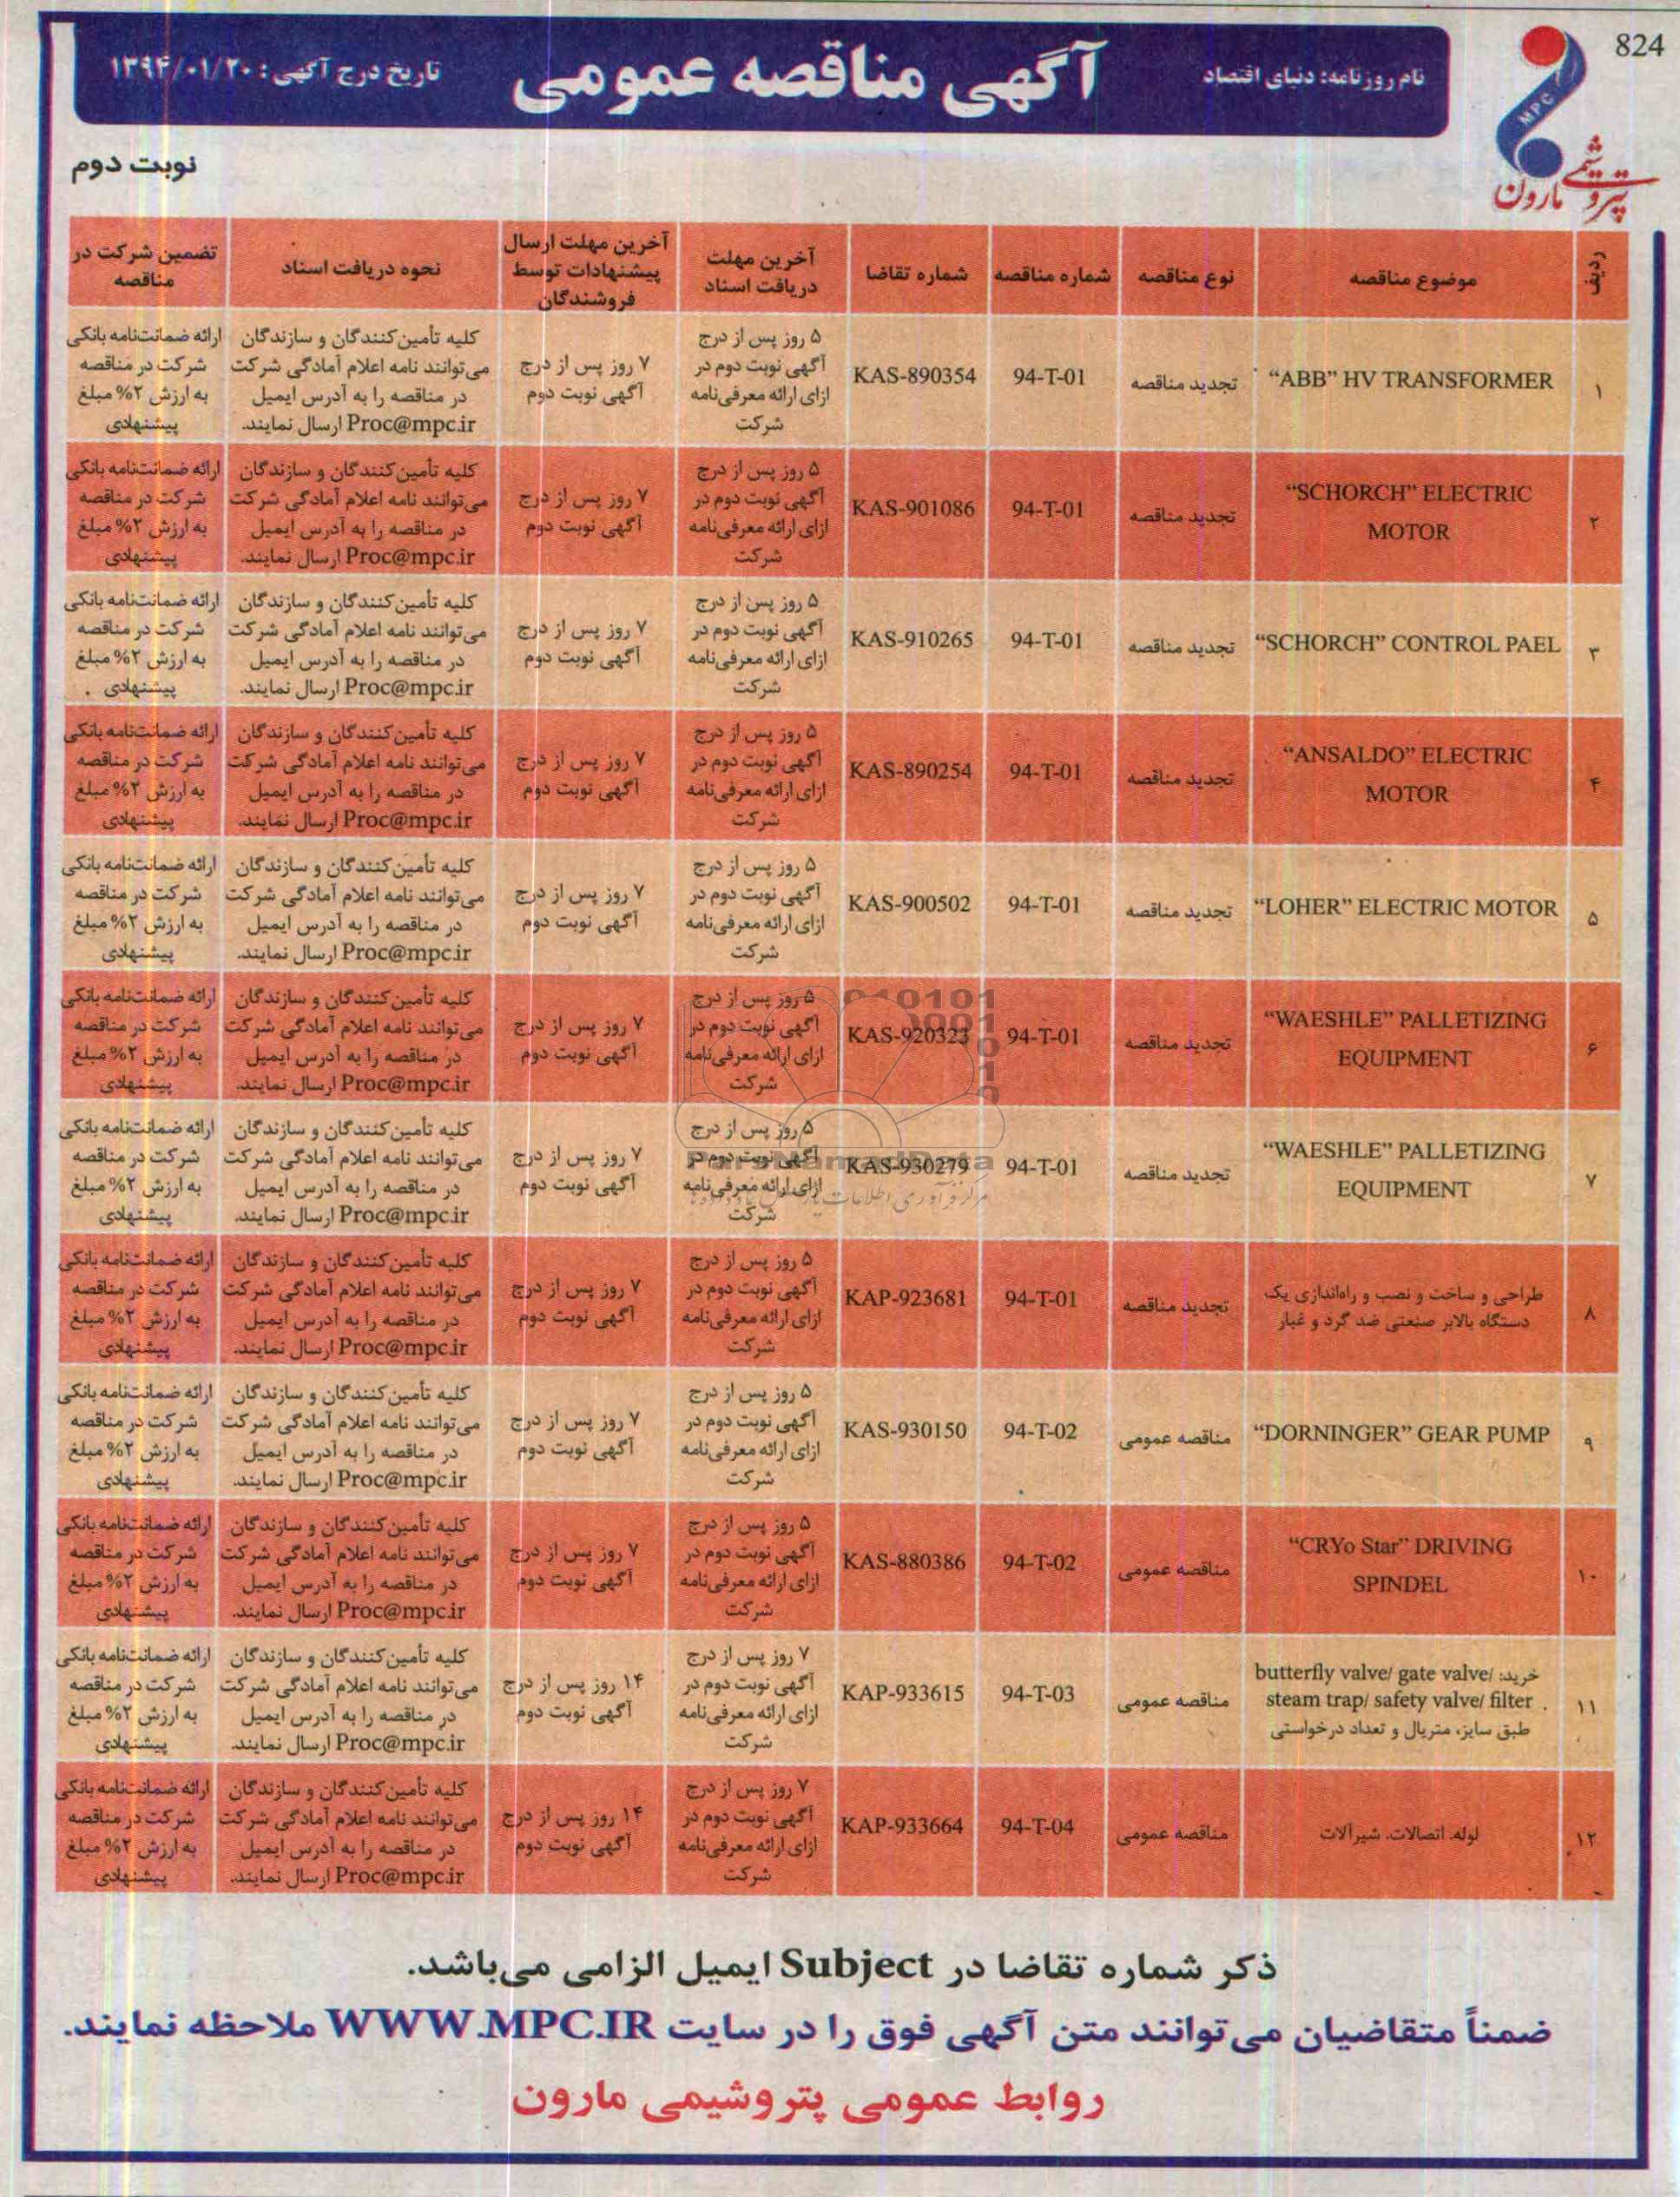 824
MPC
پتروشیمی مارون
نام روزنامه: دنیای اقتصاد
آگهی مناقصه عمومی
تاریخ درج آگهی: ۱۳۹۴/۰۱/۲۰
نوبت دوم
ردیف
موضوع مناقصه
نوع مناقصه
شماره مناقصه
شماره تقاضا
آخرین مهلت
دریافت اسناد
آخرین مهلت ارسال
پیشنهادات توسط
فروشندگان
نحوه دریافت اسناد
تضمین شرکت در
مناقصه
۱
“ABB” HV TRANSFORMER
تجدید مناقصه
94-T-01
KAS-890354
۵ روز پس از درج
آگهی نوبت دوم در
ازای ارائه معرفی‌نامه
شرکت
۷ روز پس از درج
آگهی نوبت دوم
کلیه تأمین‌کنندگان و سازندگان
می‌توانند نامه اعلام آمادگی شرکت
در مناقصه را به آدرس ایمیل
Proc@mpc.ir ارسال نمایند.
ارائه ضمانت‌نامه بانکی
شرکت در مناقصه
به ارزش ۲% مبلغ
پیشنهادی
۲
“SCHORCH” ELECTRIC
MOTOR
تجدید مناقصه
94-T-01
KAS-901086
۵ روز پس از درج
آگهی نوبت دوم در
ازای ارائه معرفی‌نامه
شرکت
۷ روز پس از درج
آگهی نوبت دوم
کلیه تأمین‌کنندگان و سازندگان
می‌توانند نامه اعلام آمادگی شرکت
در مناقصه را به آدرس ایمیل
Proc@mpc.ir ارسال نمایند.
ارائه ضمانت‌نامه بانکی
شرکت در مناقصه
به ارزش ۲% مبلغ
پیشنهادی
۳
“SCHORCH” CONTROL PAEL
تجدید مناقصه
94-T-01
KAS-910265
۵ روز پس از درج
آگهی نوبت دوم در
ازای ارائه معرفی‌نامه
شرکت
۷ روز پس از درج
آگهی نوبت دوم
کلیه تأمین‌کنندگان و سازندگان
می‌توانند نامه اعلام آمادگی شرکت
در مناقصه را به آدرس ایمیل
Proc@mpc.ir ارسال نمایند.
ارائه ضمانت‌نامه بانکی
شرکت در مناقصه
به ارزش ۲% مبلغ
پیشنهادی
۴
“ANSALDO” ELECTRIC
MOTOR
تجدید مناقصه
94-T-01
KAS-890254
۵ روز پس از درج
آگهی نوبت دوم در
ازای ارائه معرفی‌نامه
شرکت
۷ روز پس از درج
آگهی نوبت دوم
کلیه تأمین‌کنندگان و سازندگان
می‌توانند نامه اعلام آمادگی شرکت
در مناقصه را به آدرس ایمیل
Proc@mpc.ir ارسال نمایند.
ارائه ضمانت‌نامه بانکی
شرکت در مناقصه
به ارزش ۲% مبلغ
پیشنهادی
۵
“LOHER” ELECTRIC MOTOR
تجدید مناقصه
94-T-01
KAS-900502
۵ روز پس از درج
آگهی نوبت دوم در
ازای ارائه معرفی‌نامه
شرکت
۷ روز پس از درج
آگهی نوبت دوم
کلیه تأمین‌کنندگان و سازندگان
می‌توانند نامه اعلام آمادگی شرکت
در مناقصه را به آدرس ایمیل
Proc@mpc.ir ارسال نمایند.
ارائه ضمانت‌نامه بانکی
شرکت در مناقصه
به ارزش ۲% مبلغ
پیشنهادی
۶
“WAESHLE” PALLETIZING
EQUIPMENT
تجدید مناقصه
94-T-01
KAS-920323
۵ روز پس از درج
آگهی نوبت دوم در
ازای ارائه معرفی‌نامه
شرکت
۷ روز پس از درج
آگهی نوبت دوم
کلیه تأمین‌کنندگان و سازندگان
می‌توانند نامه اعلام آمادگی شرکت
در مناقصه را به آدرس ایمیل
Proc@mpc.ir ارسال نمایند.
ارائه ضمانت‌نامه بانکی
شرکت در مناقصه
به ارزش ۲% مبلغ
پیشنهادی
۷
“WAESHLE” PALLETIZING
EQUIPMENT
تجدید مناقصه
94-T-01
KAS-930279
۵ روز پس از درج
آگهی نوبت دوم در
ازای ارائه معرفی‌نامه
شرکت
۷ روز پس از درج
آگهی نوبت دوم
کلیه تأمین‌کنندگان و سازندگان
می‌توانند نامه اعلام آمادگی شرکت
در مناقصه را به آدرس ایمیل
Proc@mpc.ir ارسال نمایند.
ارائه ضمانت‌نامه بانکی
شرکت در مناقصه
به ارزش ۲% مبلغ
پیشنهادی
۸
طراحی و ساخت و نصب و راه‌اندازی یک
دستگاه بالابر صنعتی ضد گرد و غبار
تجدید مناقصه
94-T-01
KAP-923681
۵ روز پس از درج
آگهی نوبت دوم در
ازای ارائه معرفی‌نامه
شرکت
۷ روز پس از درج
آگهی نوبت دوم
کلیه تأمین‌کنندگان و سازندگان
می‌توانند نامه اعلام آمادگی شرکت
در مناقصه را به آدرس ایمیل
Proc@mpc.ir ارسال نمایند.
ارائه ضمانت‌نامه بانکی
شرکت در مناقصه
به ارزش ۲% مبلغ
پیشنهادی
۹
“DORNINGER” GEAR PUMP
مناقصه عمومی
94-T-02
KAS-930150
۵ روز پس از درج
آگهی نوبت دوم در
ازای ارائه معرفی‌نامه
شرکت
۷ روز پس از درج
آگهی نوبت دوم
کلیه تأمین‌کنندگان و سازندگان
می‌توانند نامه اعلام آمادگی شرکت
در مناقصه را به آدرس ایمیل
Proc@mpc.ir ارسال نمایند.
ارائه ضمانت‌نامه بانکی
شرکت در مناقصه
به ارزش ۲% مبلغ
پیشنهادی
۱۰
“CRYo Star” DRIVING
SPINDEL
مناقصه عمومی
94-T-02
KAS-880386
۵ روز پس از درج
آگهی نوبت دوم در
ازای ارائه معرفی‌نامه
شرکت
۷ روز پس از درج
آگهی نوبت دوم
کلیه تأمین‌کنندگان و سازندگان
می‌توانند نامه اعلام آمادگی شرکت
در مناقصه را به آدرس ایمیل
Proc@mpc.ir ارسال نمایند.
ارائه ضمانت‌نامه بانکی
شرکت در مناقصه
به ارزش ۲% مبلغ
پیشنهادی
۱۱
خرید: butterfly valve/ gate valve/
steam trap/ safety valve/ filter
طبق سایز، متریال و تعداد درخواستی
مناقصه عمومی
94-T-03
KAP-933615
۷ روز پس از درج
آگهی نوبت دوم در
ازای ارائه معرفی‌نامه
شرکت
۱۴ روز پس از درج
آگهی نوبت دوم
کلیه تأمین‌کنندگان و سازندگان
می‌توانند نامه اعلام آمادگی شرکت
در مناقصه را به آدرس ایمیل
Proc@mpc.ir ارسال نمایند.
ارائه ضمانت‌نامه بانکی
شرکت در مناقصه
به ارزش ۲% مبلغ
پیشنهادی
۱۲
لوله، اتصالات، شیرآلات
مناقصه عمومی
94-T-04
KAP-933664
۷ روز پس از درج
آگهی نوبت دوم در
ازای ارائه معرفی‌نامه
شرکت
۱۴ روز پس از درج
آگهی نوبت دوم
کلیه تأمین‌کنندگان و سازندگان
می‌توانند نامه اعلام آمادگی شرکت
در مناقصه را به آدرس ایمیل
Proc@mpc.ir ارسال نمایند.
ارائه ضمانت‌نامه بانکی
شرکت در مناقصه
به ارزش ۲% مبلغ
پیشنهادی
ذکر شماره تقاضا در Subject ایمیل الزامی می‌باشد.
ضمناً متقاضیان می‌توانند متن آگهی فوق را در سایت WWW.MPC.IR ملاحظه نمایند.
روابط عمومی پتروشیمی مارون